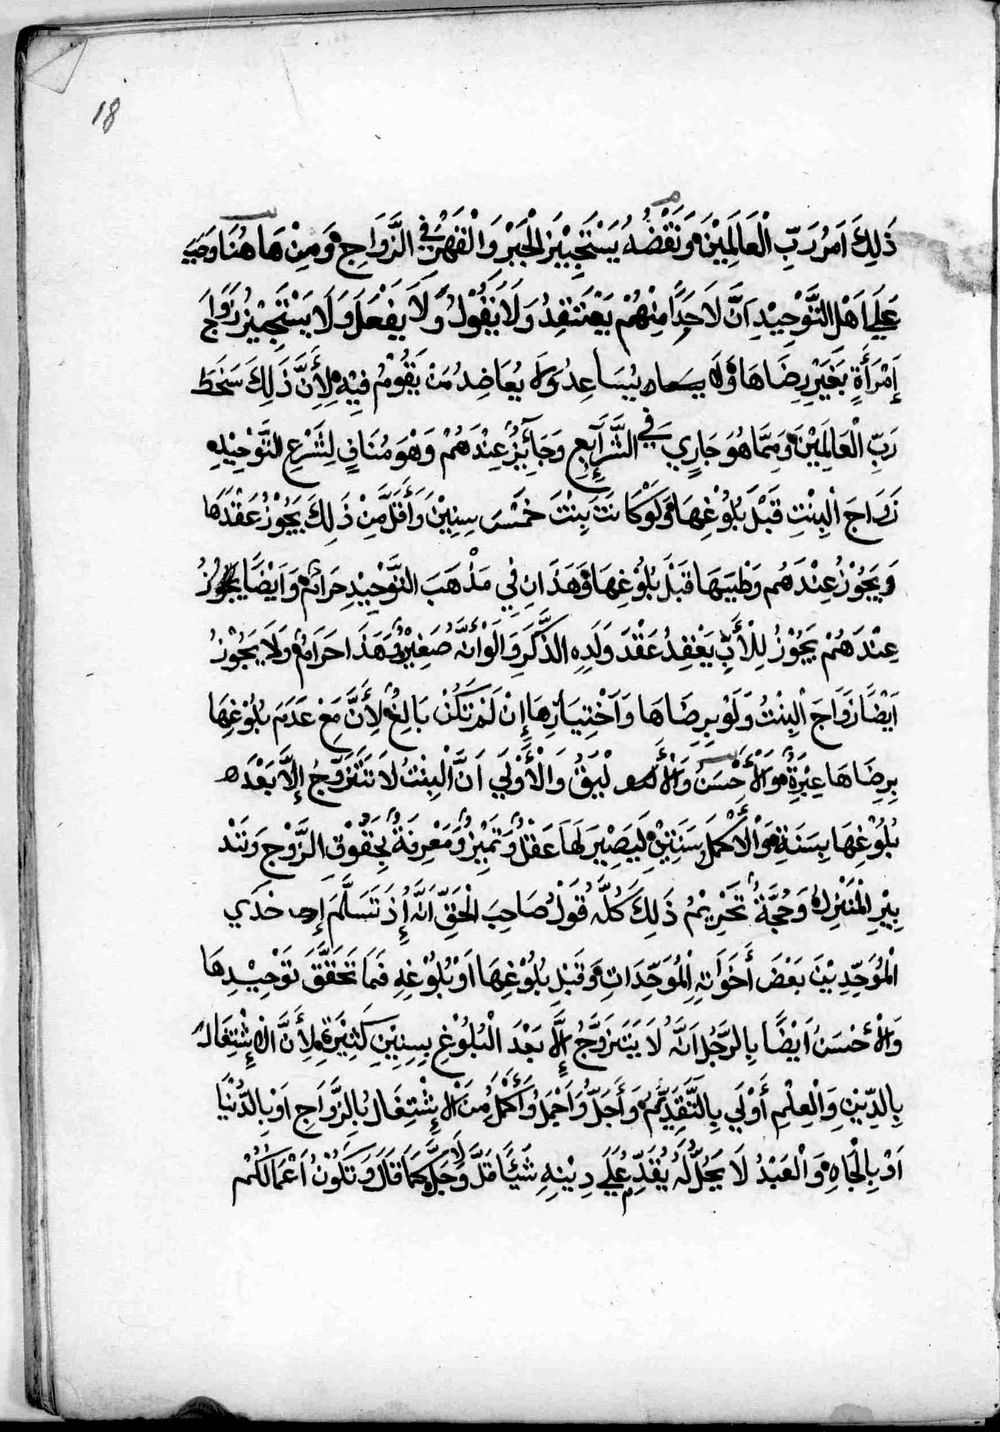 18
ذَلِكَ اَمْرُ رَبِّ الْعَالَمِيْنَ وَنَقْضُهُ يَسْتَجِيْزُ الْجَبْرَ وَالْقَهْرَ فِي الزَّوَاجِ وَمِنْ هَا هُنَا وَصِيَّة
عَلَى اَهْلِ التَّوْحِيْدِ اَنَّ لَا حَدًا مِنْهُمْ يَعْتَقِدُ وَلَا يَقُوْلُ وَلَا يَفْعَلُ وَلَا يَسْتَجِيْزُ زَوَاجَ
إِمْرَأَةٍ بِغَيْرِ رِضَاهَا وَلَا يُسَاعِدُ وَلَا يُعَاضِدُ مَنْ يَقُوْمُ فِيْهِ لِأَنَّ ذَلِكَ سَخَطُ
رَبِّ الْعَالَمِيْنَ وَمِمَّا هُوَ جَارِي فِي الشَّرَايِعِ وَجَايِزٌ عِنْدَهُمْ وَهْوَ مُنَافٍ لِشَرْعِ التَّوْحِيْدِ
زَوَاجَ الْبِنْتِ قَبْلَ بُلُوْغِهَا وَلَوْ كَانَتَ بِنْتَ خَمْسَ سِنِيْنَ وَأَقَلَّ مِنْ ذَلِكَ يَجُوْزُ عَقْدَهَا
وَيَجُوْزُ عِنْدَهُم وَطْيَهَا قَبْلَ بُلُوْغِهَا وَهَذَانِ فِي مَذْهَبَ التَّوْحِيْدِ حَرَامٌ وَاَيْضًا يَجُوْزُ
عِنْدَهُمْ يَجُوْزُ لِلْأَبِّ يَعْقِدُ عَقْدَ وَلَدِهِ الذَّكَرِ وَالَوْ أَنَّهُ صَغِيْرٌ وَهَذَا حَرَامٌ وَلَا يَجُوْزُ
اَيْضًا زَوَاجَ الْبِنْتُ وَلَوْ بِرِضَاهَا وَاَخْتِيَارِهَا إِنْ لَمْ تَكُنْ بَالِغٌ لِأَنَّ مَعْ عَدَمَ بُلُوْغِهَا
بِرِضَاهَا عِبْرَةٌ وَالْأَحْسَنُ وَالْأَلْيَقُ وَالْأَوْلَى اَنَّ الْبِنْتُ لَا تَتَزَوَّجُ إِلَّا بَعْدَ
بُلُوْغِهَا بِسَنَةٍ وَالْأَكْمَلُ سَنَتِيْنِ لَيَصِيْرَ لَهَا عَقْلٌ وَتَمْيِيْزٌ وَمَعْرِفَةٌ بِحَقُوْقِ الزَّوْجِ وَتَدْ
بِيْرِ الْمَنْزِلِ وَحُجَّةُ تَحْرِيْمُ ذَلِكَ كُلَّهُ قَوْلُ صَاحِبَ الْحَقِّ اَنَّهُ إِذَ تَسَلَّمَ إِحْدَى
الْمُوَحِّدِيْنَ بَعْضَ أَخَوَاتِهِ الْمُوَحِّدَاتِ وَقَبْلَ بُلُوْغِهَا اَوْ بُلُوْغِهِ فَمَا تَحَقَّقَ تَوْحِيْدِهَا
وَالْأَحْسَنُ اَيْضًا بِالرَّجُلِ اَنَّهُ لَا يَتَزَوَّجُ إِلَّا بَعْدَ الْبُلُوْغِ بِسِنِيْنٍ كَثِيْرَةٍ لِأَنَّ الْإِشْتِغَالُ
بِالدِّيْنِ وَالْعِلْمِ أَوْلَى بِالتَّقَدِّمُ وَأَجَلُّ وَاَجْمَلُ وَأَكْمَلُ مِنَ الْإِشْتِغَالُ بِالزَّوَاجِ اَوْ بِالدُّنْيَا
اَوْ بِالْجَاهِ وَالْعَبْدُ لَا يَحِلُّ لَهُ يُقَدِّمُ عَلَى دِيْنِهِ شَيْئًا قَلَّ وَلَا جَلَّ كَمَا قَالَ وَتَكُوْنُ اَعْمَالَكُمْ